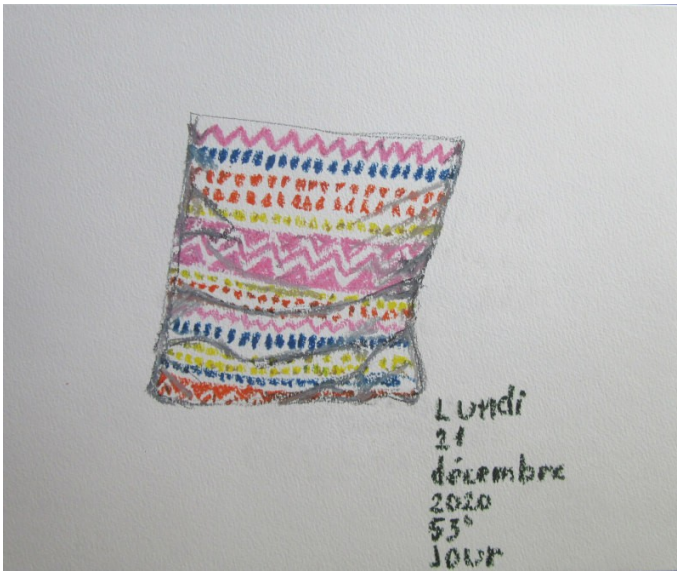 Lundi
21
décembre
2020
53°
Jour